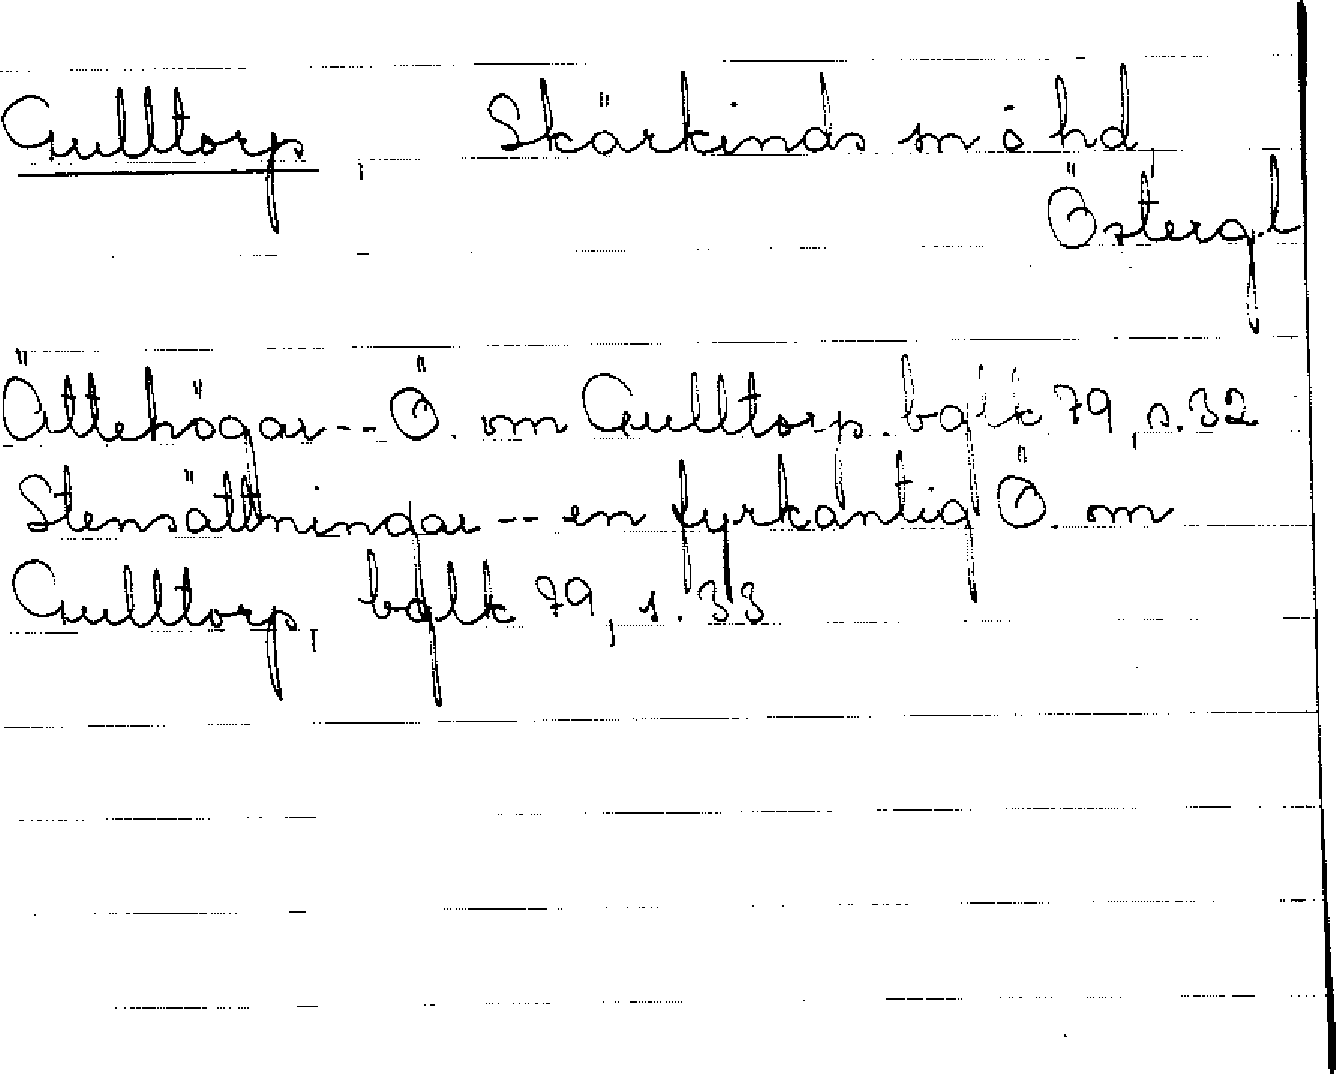 Gulltorp, Skärkinds sn o hd,
Östergl
Ättehögar -- Ö. om Gulltorp. bglk 79, s. 32
Stensättningar -- en fyrkantig Ö. om
Gulltorp, bglk 79, s. 33